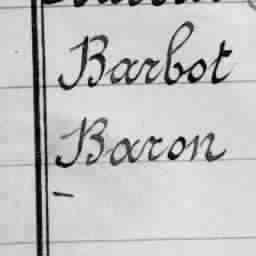 Barbot
Baron
–